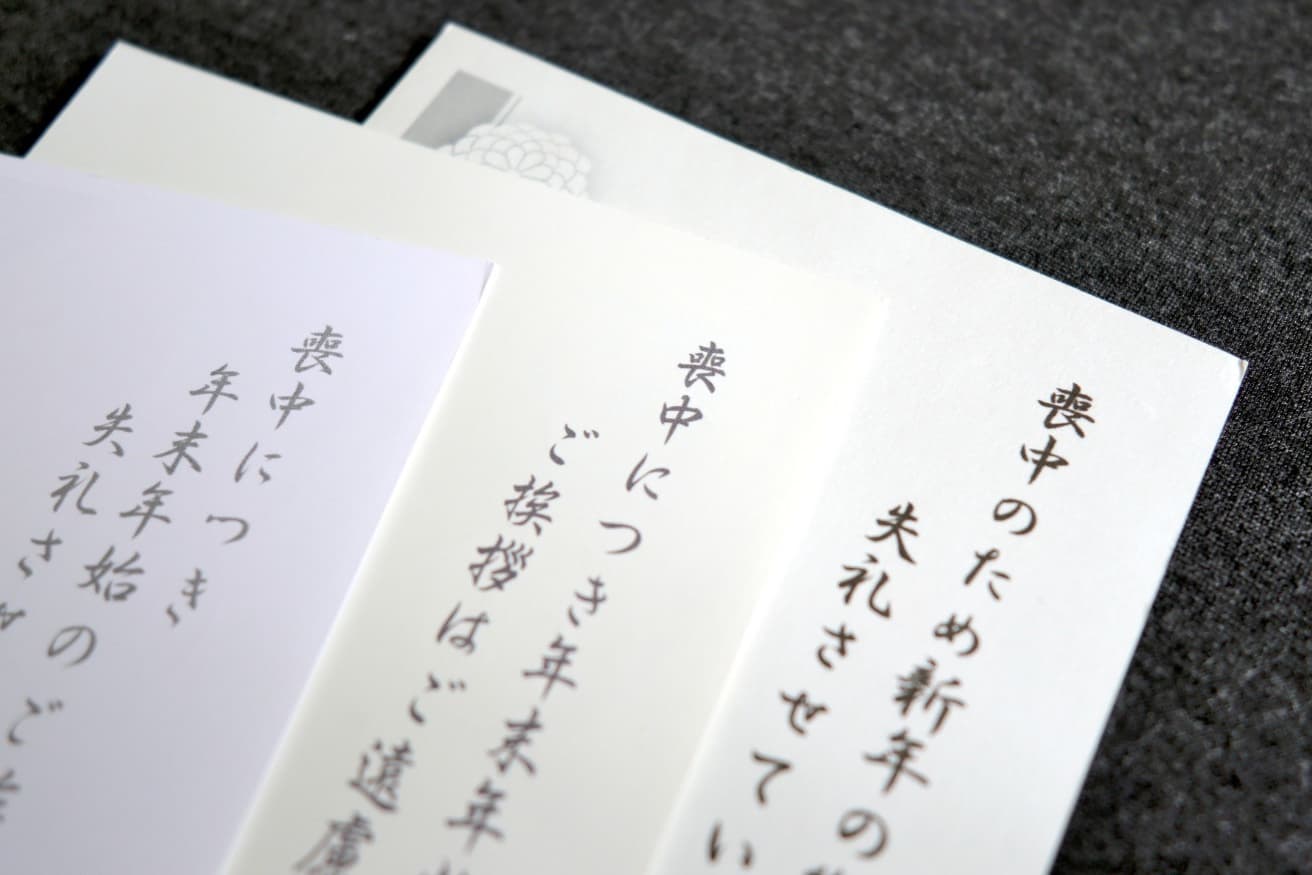 喪中のため新年の
失礼させてい
喪中につき年末年
ご挨拶はご遠慮
喪中につき
年末年始のご
失礼さ